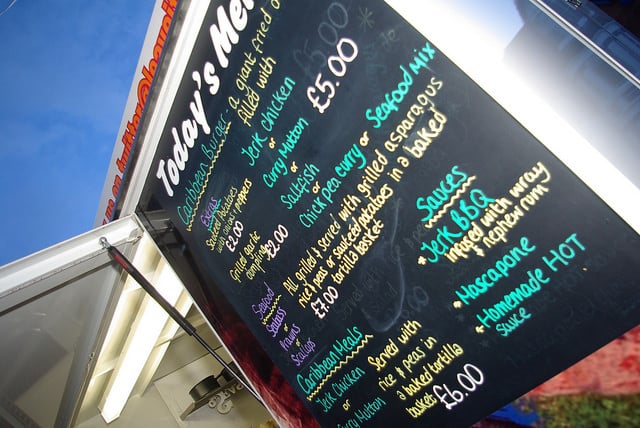 Today's Me
Caribbean Burger - a giant fried
filled with
£5.00
Jerk chicken
or
Curry Mutton
or
Saltfish
or
Chick pea curry or Seafood Mix
Extras
Sauteed Potatoes
with onions & peppers
£2.00
Grilled garlic
£2.00
Seafood
Seabass
or
Prawns
or
Scallops
All grilled & served with grilled asparagus
rice & peas or sauteed potatoes in a baked
tortilla basket
£7.00
Caribbean Meals
Jerk Chicken
or
Curry Mutton
Served with
rice & peas in
a baked tortilla
basket £6.00
Sauces
* Jerk BBQ
infused with wray
& nephew rum
* Mascapone
* Homemade HOT
Sauce